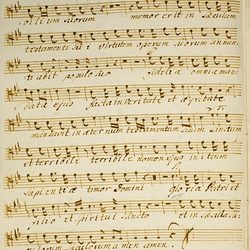 suorum memor erit in sæculum
testamenti sui virtutem operum suorum annun
tiabit populo suo fidelia omnia man
data ejus facta in veritate et
mandavit in æternum testamentum suum sanctum
et terribile nomen ejus initium
sapientiæ timor Domini gloria Patri et
filio et spiritui sancto et in sæcula
sæculorum amen amen.